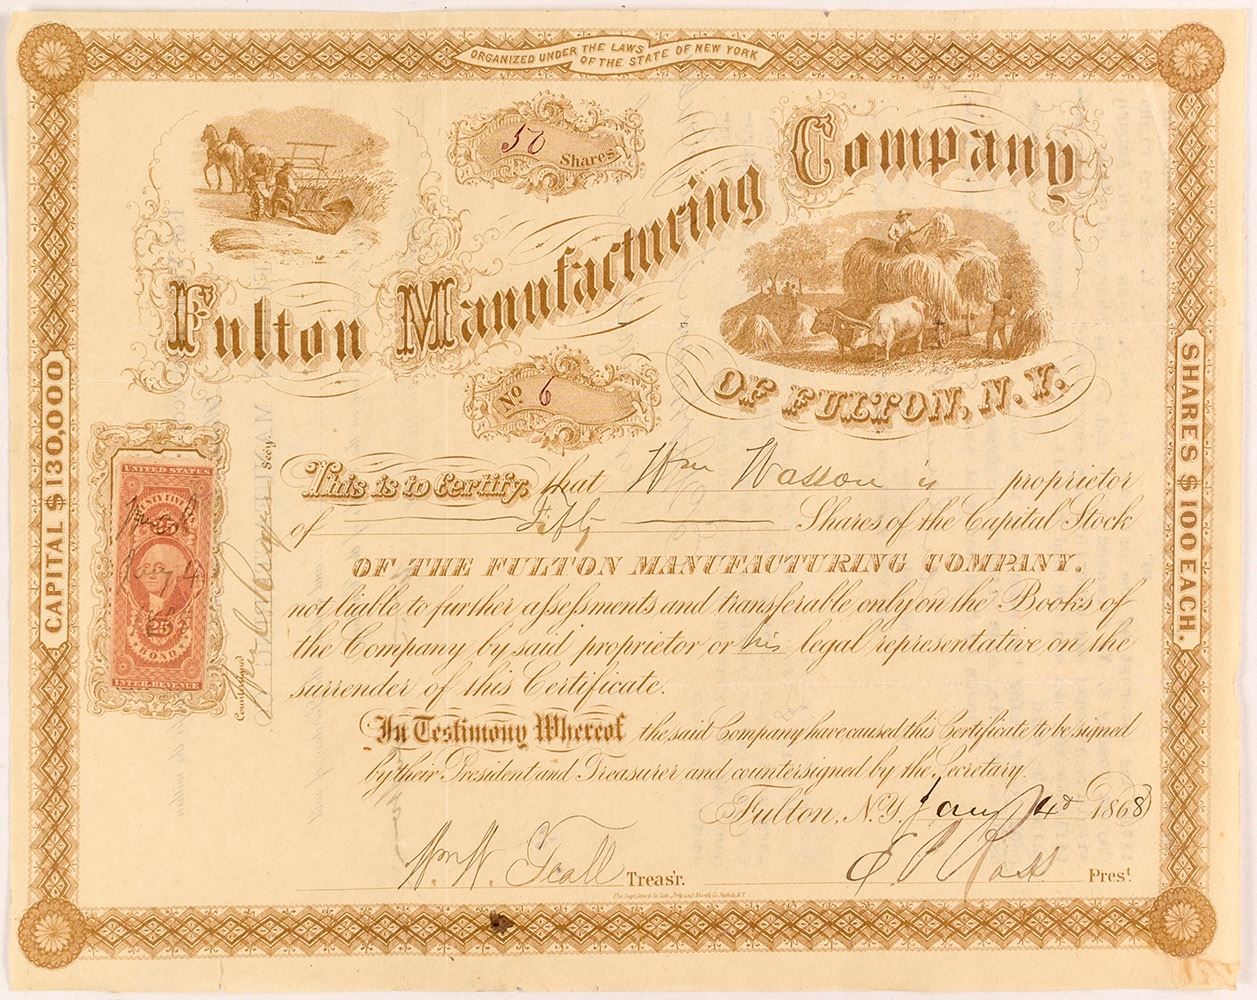 ORGANIZED UNDER THE LAWS
OF THE STATE OF NEW YORK
50 Shares
Fulton Manufacturing Company
OF FULTON, N.Y.
No 6
CAPITAL $130,000
SHARES $100 EACH.
This is to Certify, that Wm Wasson is proprietor
of Fifty Shares of the Capital Stock
OF THE FULTON MANUFACTURING COMPANY.
not liable to further assessments and transferable only on the Books of
the Company by said proprietor or his legal representative on the
surrender of this Certificate.
In Testimony Whereof the said Company have caused this Certificate to be signed
by their President and Treasurer and countersigned by the Secretary.
Fulton, N.Y. Jany 4th 1868
Treasr.
Prest
Countersigned
Secy.
UNITED STATES
TWENTY FIVE CTS
25
25
BOND
INTER. REVENUE